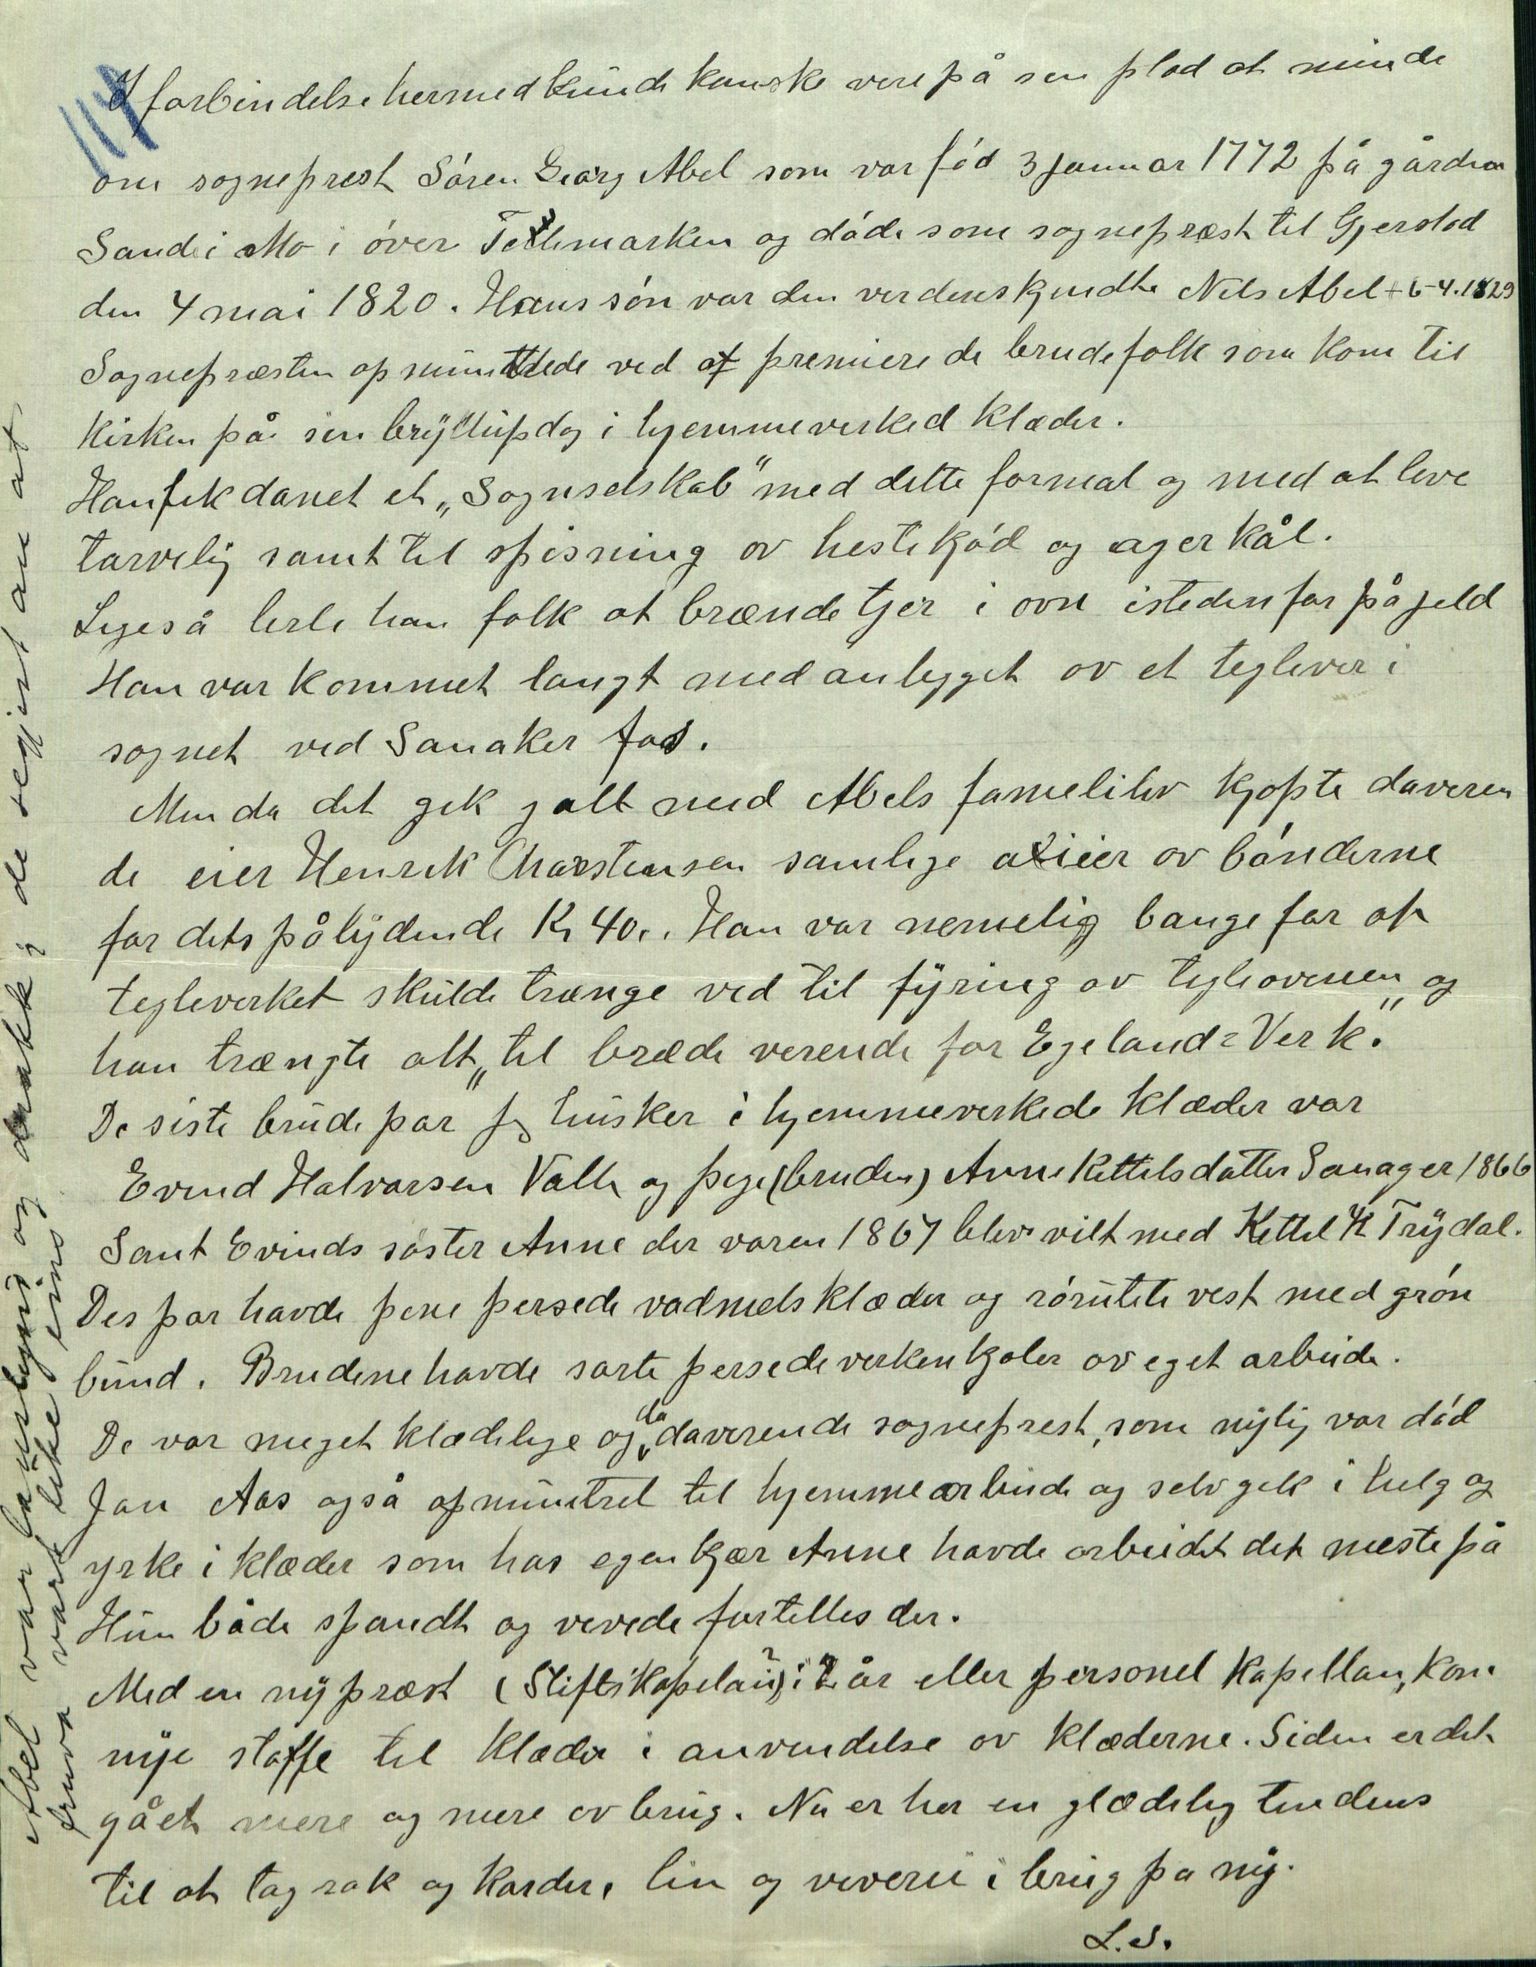 I forbindelse hermed kunde kanske vere på sin plad at minde
om sogneprest Sóren Georg Abel som var fód 3 januar 1772 på gården
Sande i Mo i óver Tellemarken og dóde som sogneprest til Gjerstad
den 4 mai 1820. Hans són var den verdenskjendte Nils Abel + 6-4.1829
Sognepræsten opmuntrede ved at premiere de brudefolk som kom til
Kirken på sin bryllupdag i hjemmeverked klæder.
Han fik danet et „Sognselskab" med dette formal og med at leve
tarvelig samt til spisning ov hestekjód og agerkål.
Lyeså lerte han folk at brænde tjer i ovn istedenfor på jeld
Han var kommet langt med anlegget ov et teglever i
sognet ved Sanaker fos.
Men da det gik galt med Abels famililiv kjøpte daveren
de eier Henrik Charstensen samlige axieer ov bónderne
for dets pålydende Kr 40,. Han var nemelig bange for at
tegleverket skulde trænge ved til fyring ov tegleovenen og
han trængte alt „til bræde verende for Egelands Verk."
De siste brudepar jeg husker i hjemmeverkede klæder var
Evind Halvarsen Valle og pige (bruden) Anne Kettelsdatter Sanager 1866
Samt Evinds sóster Anne der varen 1867 blev vilt med Kettel K Trydal.
Des par havde pene persede vadmelsklæder og rórutete vest med grón
bund. Brudene havde sorte persede verkenkjoler ov eget arbeide.
De var meget klædelige og da daverende sogneprest, som nylig var dód
Jon Aas også opmuntret til hjemmearbeide og selv gik i helg og
yrke i klæder som has egen kjær Anne havde arbeidet det meste på
Hun både spandt og vevede fortelles der.
Med en ny præst (Stiftskapelan?) i 2 år eller personel Kapellan, kom
nye stoffe til klæder i anvendelse ov klæderne. Siden er det
gået mere og mere ov brug. Nu er her en glædelig tendens
til at tag rok og karder, lin og veveri i brug på ny.
L.S.
Abel var lauslynd og drakk; de segjist an at
fruva vart like eins